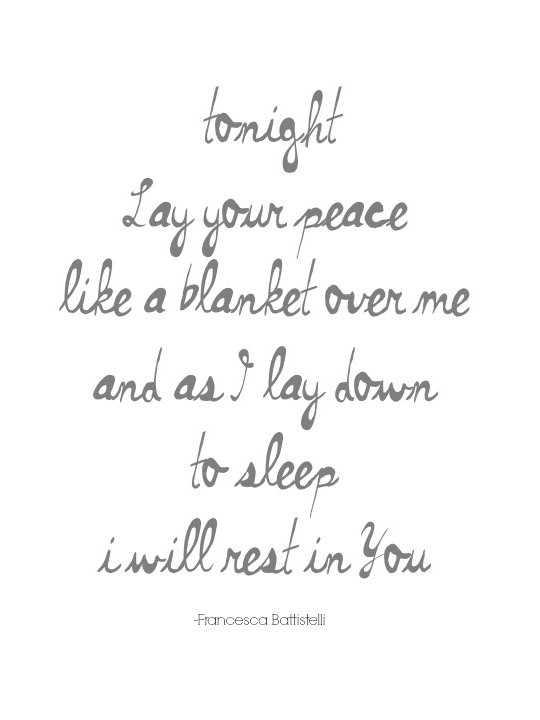 tonight
Lay your peace
like a blanket over me
and as I lay down
to sleep
i will rest in You
-Francesca Battistelli